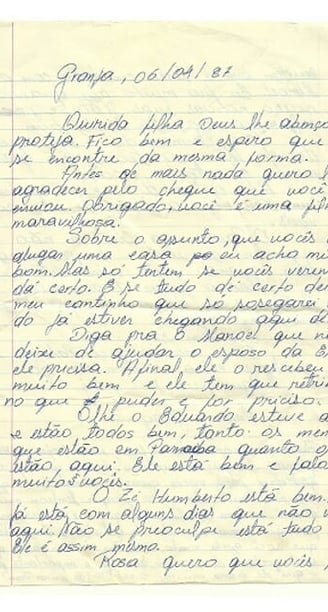 Granja, 06/04/87
Querida filha Deus lhe abenço
proteja. Fico bem e espero que
se encontre da mesma forma.
Antes de mais nada quero l
agradecer pelo cheque que você
enviou. Obrigado, você é uma fil
maravilhosa.
Sobre o assunto, que vocês
alugar uma casa eu acho mui
bom. Mas só tentem se vocês verem
dá certo. E se tudo dê certo de
meu cantinho que só sossegarei
do já estiver chegando aqui de
Diga pra o Manoel que n
deixe de ajudar o esposo da E
ele precisa. Afinal ele o recebeu
muito bem e ele tem que retri
no que puder e for preciso.
Olhe o Eduardo esteve a
e estão todos bem, tanto os me
que estão em Parnaíba quanto o
estão aqui. Ele está bem e fala
muito vocês.
O Zé Humberto está bem.
já está com alguns dias que não v
aqui. Não se preocupe está tudo
Ele é assim mesmo.
Rosa quero que vocês